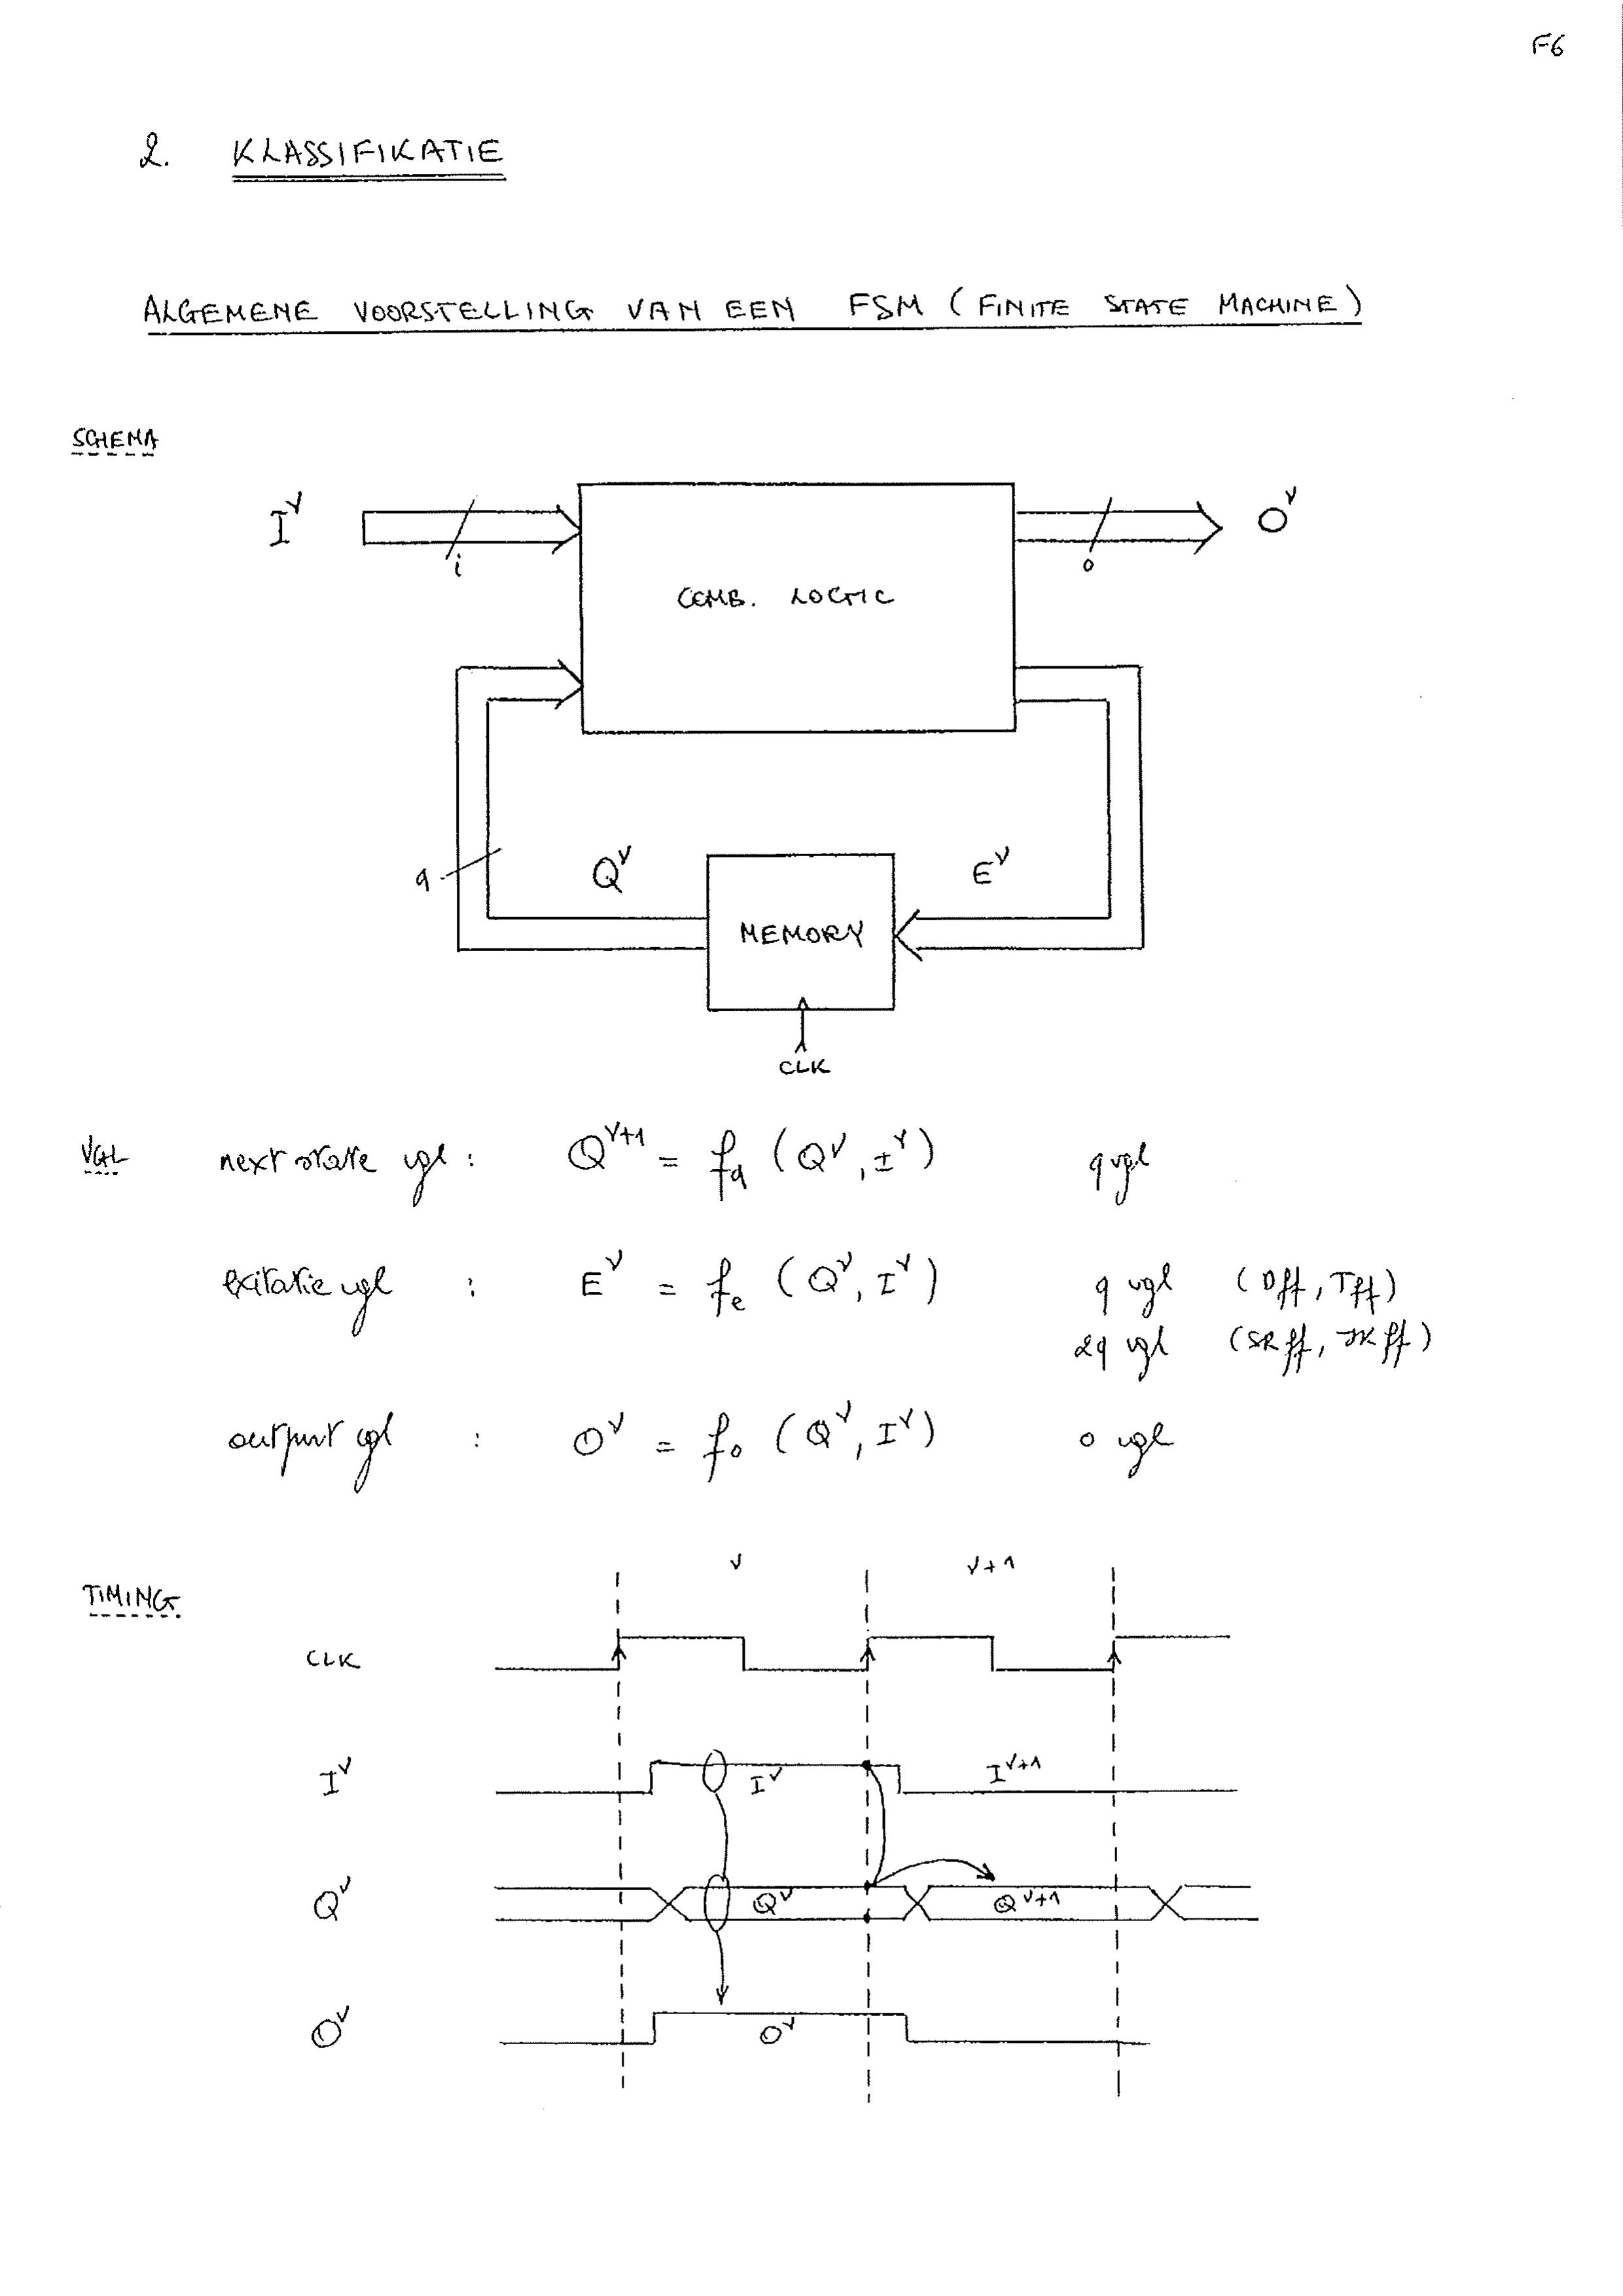 F6
2. KLASSIFIKATIE
ALGEMENE VOORSTELLING VAN EEN FSM (FINITE STATE MACHINE)
SCHEMA
I^ν
i
COMB. LOGIC
o
O^ν
q
Q^ν
E^ν
MEMORY
CLK
VGL next state vgl : Q^ν+1 = f_q (Q^ν, I^ν) q vgl
exitatie vgl : E^ν = f_e (Q^ν, I^ν) q vgl (Dff, Tff)
2q vgl (SRff, JKff)
output vgl : O^ν = f_o (Q^ν, I^ν) o vgl
TIMING
ν ν+1
CLK
I^ν I^ν I^ν+1
Q^ν Q^ν Q^ν+1
O^ν O^ν